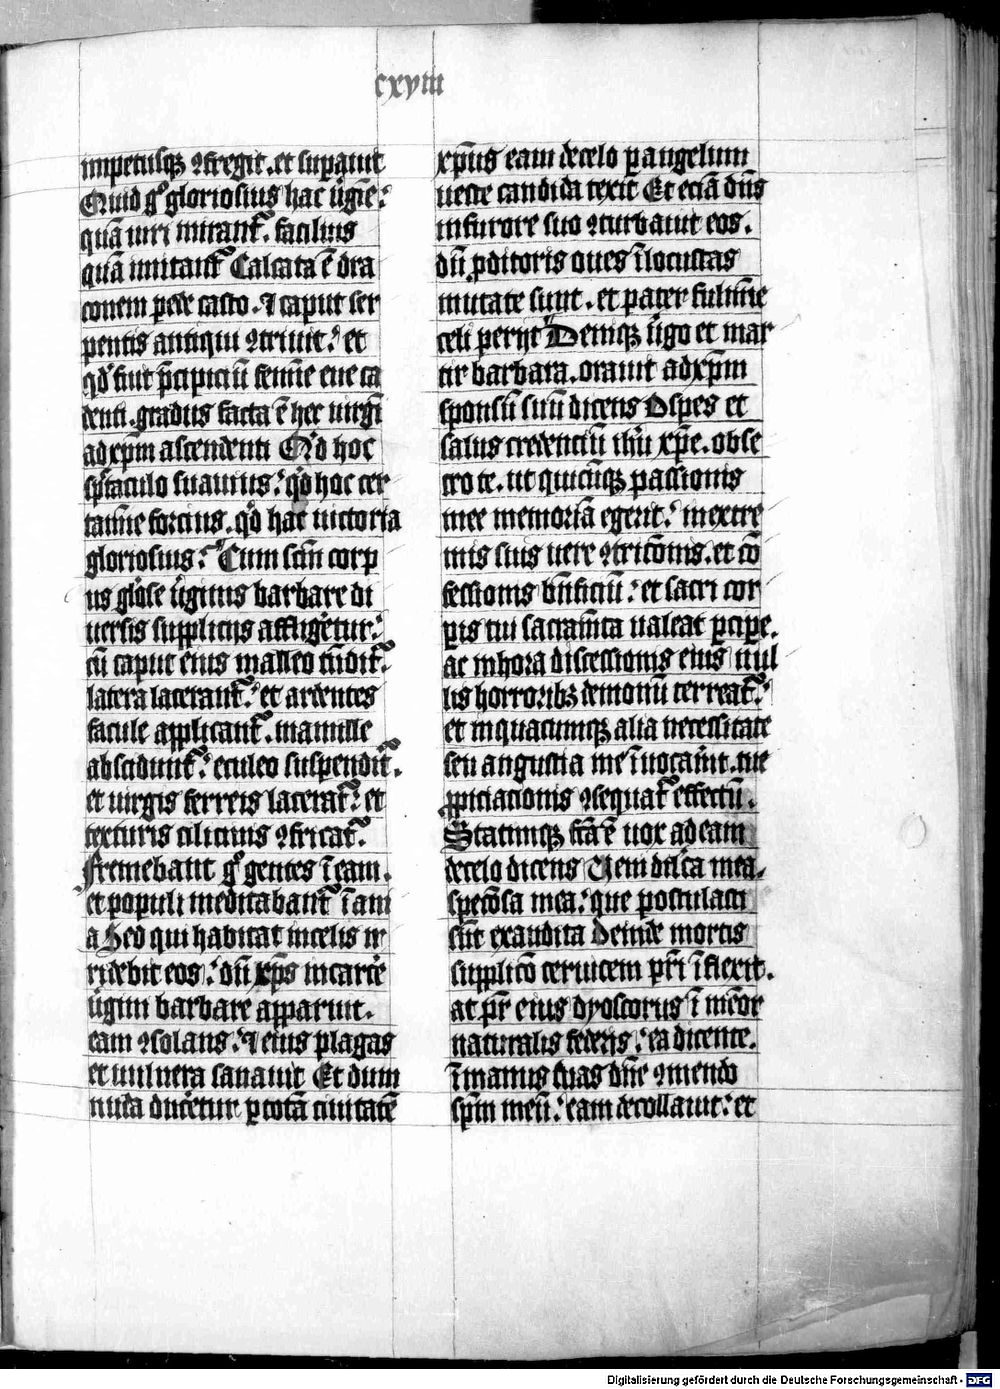 cxviii
impetusqꝫ ꝯfregit. et supauit
Quid gͦ gloriosius hac ůgīe?
quā uiri mirantᷣ. facilius
quā imitantᷣ Calcata ē dra
conem pede casto. ⁊ caput ser
pentis antiqui ꝯtriuit: et
qd̓ fuit p̄cipiciū femīe eue ca
denti. gradus facta ē hec uirgī
ad xp̄m ascendenti Qd̓ hoc
sp̄taculo suauius: qd̓ hoc cer
tamīe forcius. qd̓ hac uictoria
gloriosius: Cum scīm corp
us gl̓ose ůginis barbare di
uersis suppliciis affligētur:
cū caput eius malleo tūditᷣ.
latera lacerantᷣ: et ardentes
facule applicantᷣ. mamille
absciduntᷣ: eculeo suspenditᷣ.
et uirgis ferreis laceratᷣ: et
texturis cilicinis ꝯfricatᷣ.
Fremebant gͦ gentes ī eam.
et populi meditabantᷣ ī ani
a Sed qui habitat in celis ir
ridebit eos: dū xp̄s in carcē
ůgini barbare apparuit.
eam ꝯsolans: ⁊ eius plagas
et uulnera sanauit Et dum
nuda ducetur ꝑ totā ciuitatē
xp̄us eam de celo ꝑ angelum
ueste candida texit Et eciā dn̄s
in furore suo ꝯturbauit eos.
dū ꝓditoris oues ī locustas
mutate sunt. et pater fulmīe
celi periit Deniqꝫ ůgo et mar
tir barbara. orauit ad xp̄m
sponsū suū dicens O spes et
salus credenciū ih̄u xp̄e. obse
cro te. ut quicūqꝫ passionis
mee memoriā egerit: in extre
mis suis uere ꝯtricōnis. et cō
fessionis bn̄ficiū: et sacri cor
ꝑis tui sacramn̄ta ualeat ꝑcipe.
ac in hora discessionis eius nul
lis horroribꝫ demonū terreatᷣ:
et in quacumqꝫ alia necessitate
seu angustia me īuocauīt. tue
ꝓpiciacionis ꝯsequatᷣ effectū.
Statimqꝫ fc̄a ē uox ad eam
de celo dicens Veni dil̓ca mea.
specōsa mea: que postulasti
sūt exaudita Deinde mortis
supplicō ceruicem pr̄i īflexit.
at pr̄ eius dyoscorus ī mēor
naturalis federis: ea dicente.
ī manus tuas dn̄e ꝯmendo
sp̄m meū: eam decollauit: et
Digitalisierung gefördert durch die Deutsche Forschungsgemeinschaft - DFG